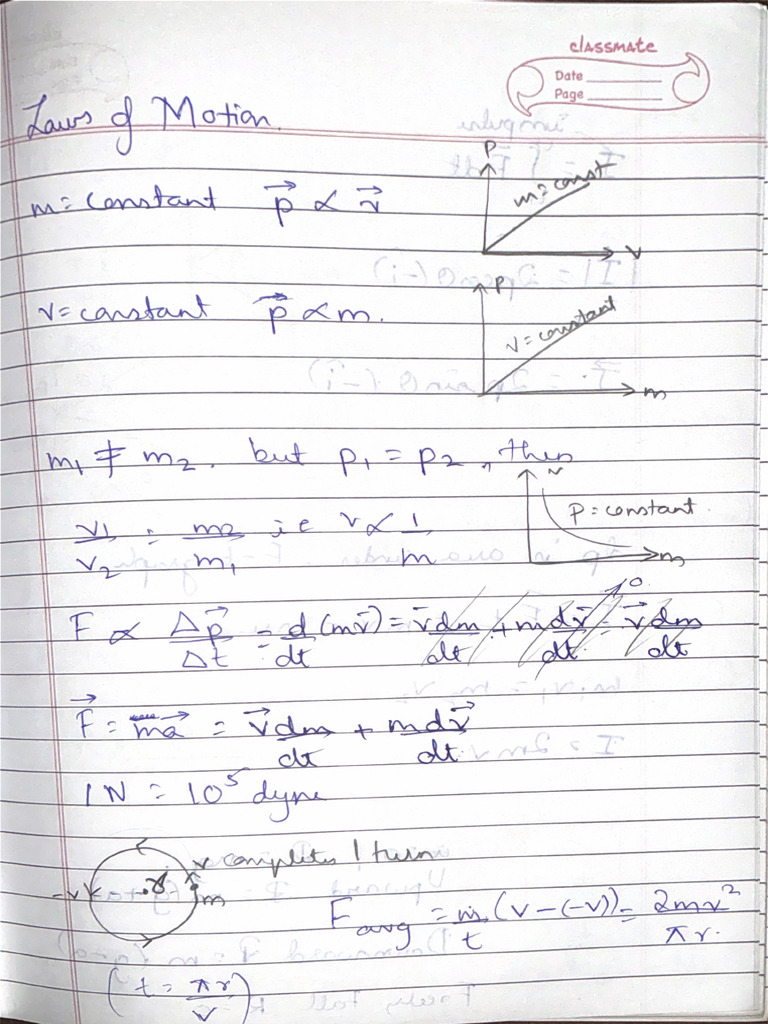 classmate
Date
Page
Laws of Motion.
m = constant p⃗ ∝ v⃗
P
m = const
v
v = constant p⃗ ∝ m.
P
v = constant
m
m₁ ≠ m₂. but p₁ = p₂, then
v₁/v₂ = m₂/m₁ ie v ∝ 1/m
v
P = constant
m
F ∝ Δp⃗/Δt = d/dt (mv⃗) = v⃗dm/dt + mdv⃗/dt → 0 = v⃗dm/dt
F⃗ = ma⃗ = v⃗dm/dt + mdv⃗/dt
1 N = 10⁵ dyne
v completes 1 turn
-v r m
F avg = m/t (v-(-v)) = 2mv²/πr.
(t = πr/v)